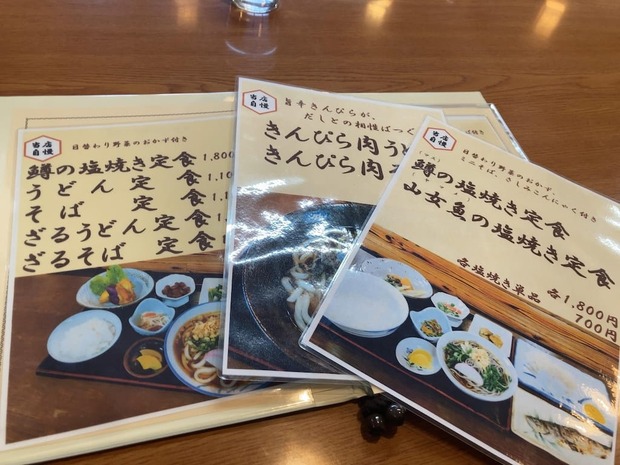 当店
自慢
日替わり野菜のおかず付き
鱒の塩焼き定食 1,800
うどん定食 1,10
そば定食 1,1
ざるうどん定食 1,
ざるそば定食
当店
自慢
旨辛きんぴらが、
だしとの相性ばつぐ
きんぴら肉う
きんぴら肉
当店
自慢
日替わり野菜のおかず、
ミニそば、さしみこんにゃく付き
(マス)
鱒の塩焼き定食
山女魚の塩焼き定食
各1,800円
各塩焼き単品 700円